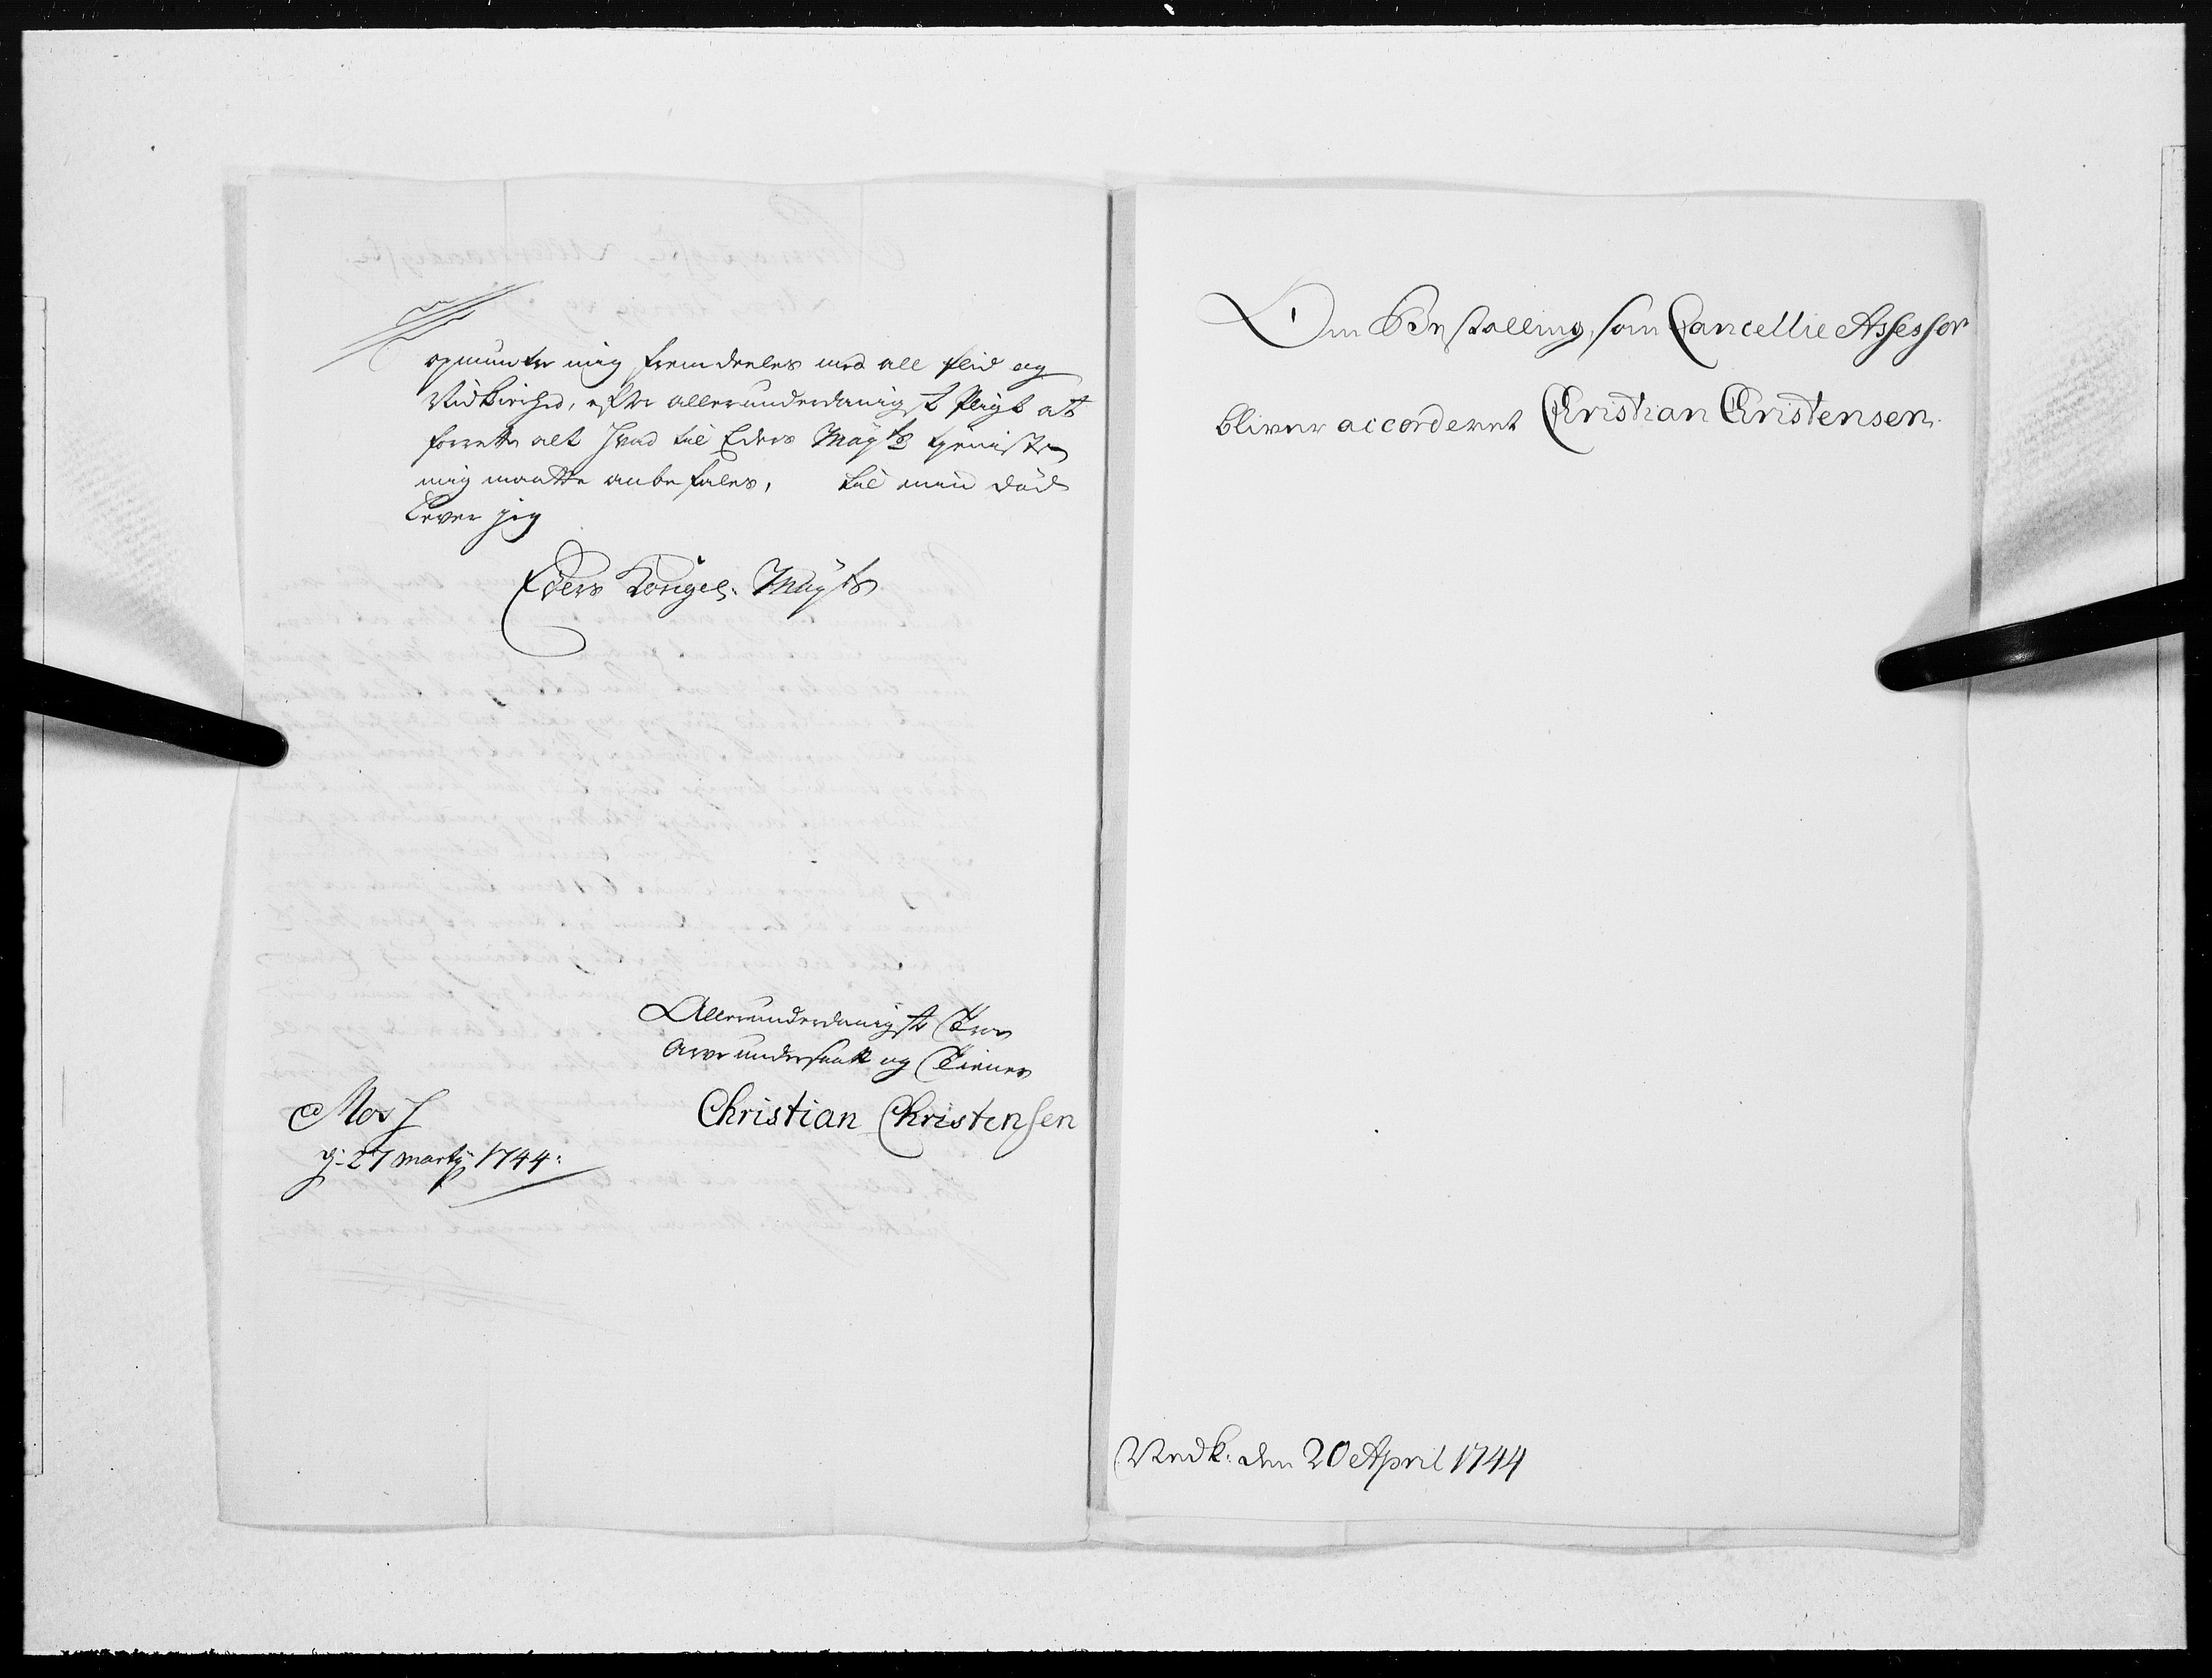 opmuntre mig fremdeeles med all flid og
Vidkirhed, efter allerunderdanigst Pligt at
forrette alt hvad til Eders Mayts tjeniste
mig maatte anbefales, til min død
lever jeg
Eders Kongel. Mayts
Allerunderdanigste Troe
Arve undersaatt og Tiener
Christian Christensen
Mos
d: 27 marty 1744:
Om Bestalling, som Cancellie Assessor
bliver accorderet Christian Christensen.
Vedk: den 20 April 1744